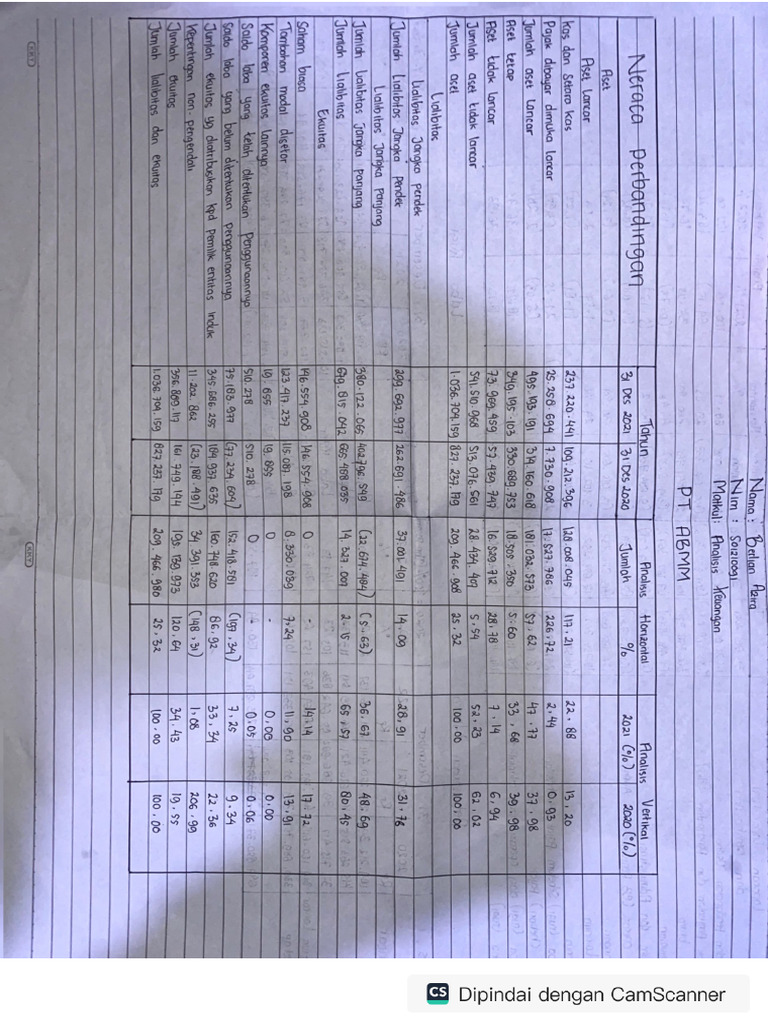 Nama : Berlian Azira
Nim :
Matkul : Analisis Keuangan
PT ABMM
Neraca perbandingan Tahun Analisis Horizontal Analisis Vertikal
31 Des 2021 31 Des 2020 Jumlah % 2021 (%) 2020 (%)
Aset
Aset Lancar
Kas dan Setara kas 237.220.441 109.212.396 128.008.045 117,21 22,88 13,20
Pajak dibayar dimuka lancar 25.258.694 7.730.908 17.527.786 226,72 2,44 0,93
Jumlah aset Lancar 495.193.191 314.160.618 181.032.573 57,62 47,77 37,98
Aset tetap 349.195.103 330.689.753 18.505.350 5,60 33,68 39,98
Aset tidak lancar 73.969.459 57.439.747 16.529.712 28,78 7,14 6,94
Jumlah aset tidak lancar 541.510.968 513.076.561 28.434.407 5,54 52,23 62,02
Jumlah aset 1.036.704.159 827.237.179 209.466.980 25,32 100,00 100,00
Lialibitas
Lialibitas Jangka pendek
Jumlah Lialibitas Jangka Pendek 299.692.977 262.691.486 37.001.491 14,09 28,91 31,76
Lialibitas Jangka Panjang
Jumlah Lialibitas Jangka Panjang 380.122.065 402.796.549 (22.674.484) (5,63) 36,67 48,69
Jumlah Lialibitas 679.815.042 665.488.035 14.327.007 2,15 65,57 80,45
Ekuitas
Saham biasa 146.554.908 146.554.908 0 - 14,14 17,72
Tambahan modal disetor 123.417.237 115.087.198 8.330.039 7,24 11,90 13,91
Komponen ekuitas lainnya 19.855 19.855 0 - 0,00 0,00
Saldo laba yang telah ditentukan Penggunaannya 510.278 510.278 0 - 0,05 0,06
Saldo laba yang belum ditentukan penggunaannya 75.183.977 (77.234.604) 152.418.581 (197,34) 7,25 9,34
Jumlah ekuitas yg diatribusikan kpd pemilik entitas Induk 345.686.255 184.937.635 160.748.620 86,92 33,34 22,36
Kepentingan non-pengendali 11.202.862 (23.188.491) 34.391.353 (148,31) 1,08 206,99
Jumlah ekuitas 356.889.117 161.749.144 195.139.973 120,64 34,43 19,55
Jumlah lialibitas dan ekuitas 1.036.704.159 827.237.179 209.466.980 25,32 100,00 100,00
CS Dipindai dengan CamScanner